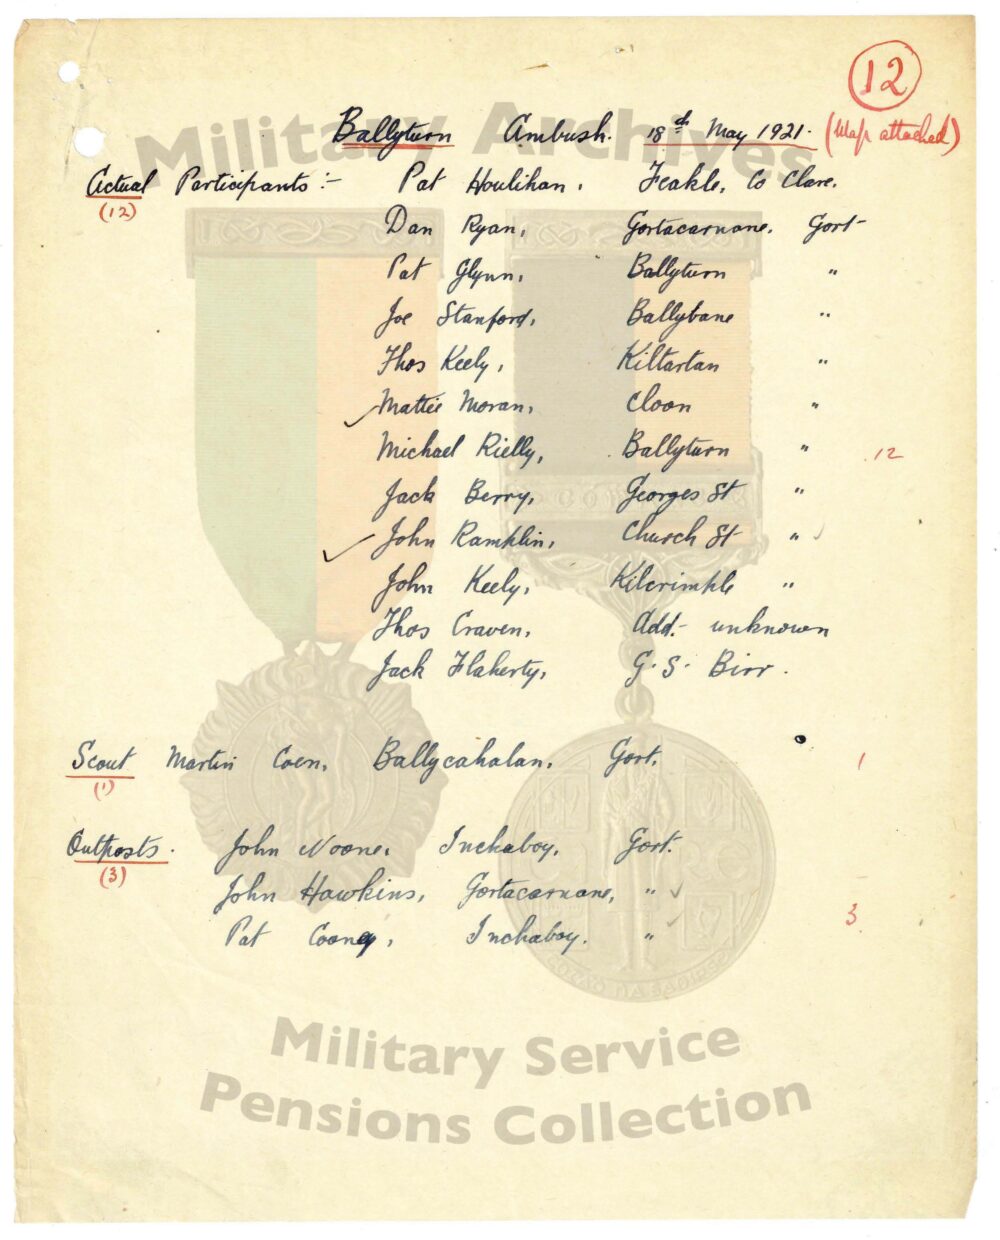 12
Ballyturn Ambush. 18th May 1921. (Map attached)
Actual Participants :- Pat Houlihan, Feakle, Co Clare.
(12)
Dan Ryan, Gortacarnane, Gort
Pat Glynn, Ballyturn "
Joe Stanford, Ballybane "
Thos Keely, Kiltartan "
Mattie Moran, Cloon "
Michael Rielly, Ballyturn " 12
Jack Berry, Georges St "
John Ramplin, Church St "
John Keely, Kilcrimple "
Thos Craven, Add. unknown
Jack Flaherty, G.S. Birr.
Scout Martin Coen, Ballycahalan, Gort. 1
(1)
Outposts. John Noone, Inchaboy, Gort.
(3)
John Hawkins, Gortacarnane, "
Pat Cooney, Inchaboy. " 3
Military Archives
Military Service
Pensions Collection